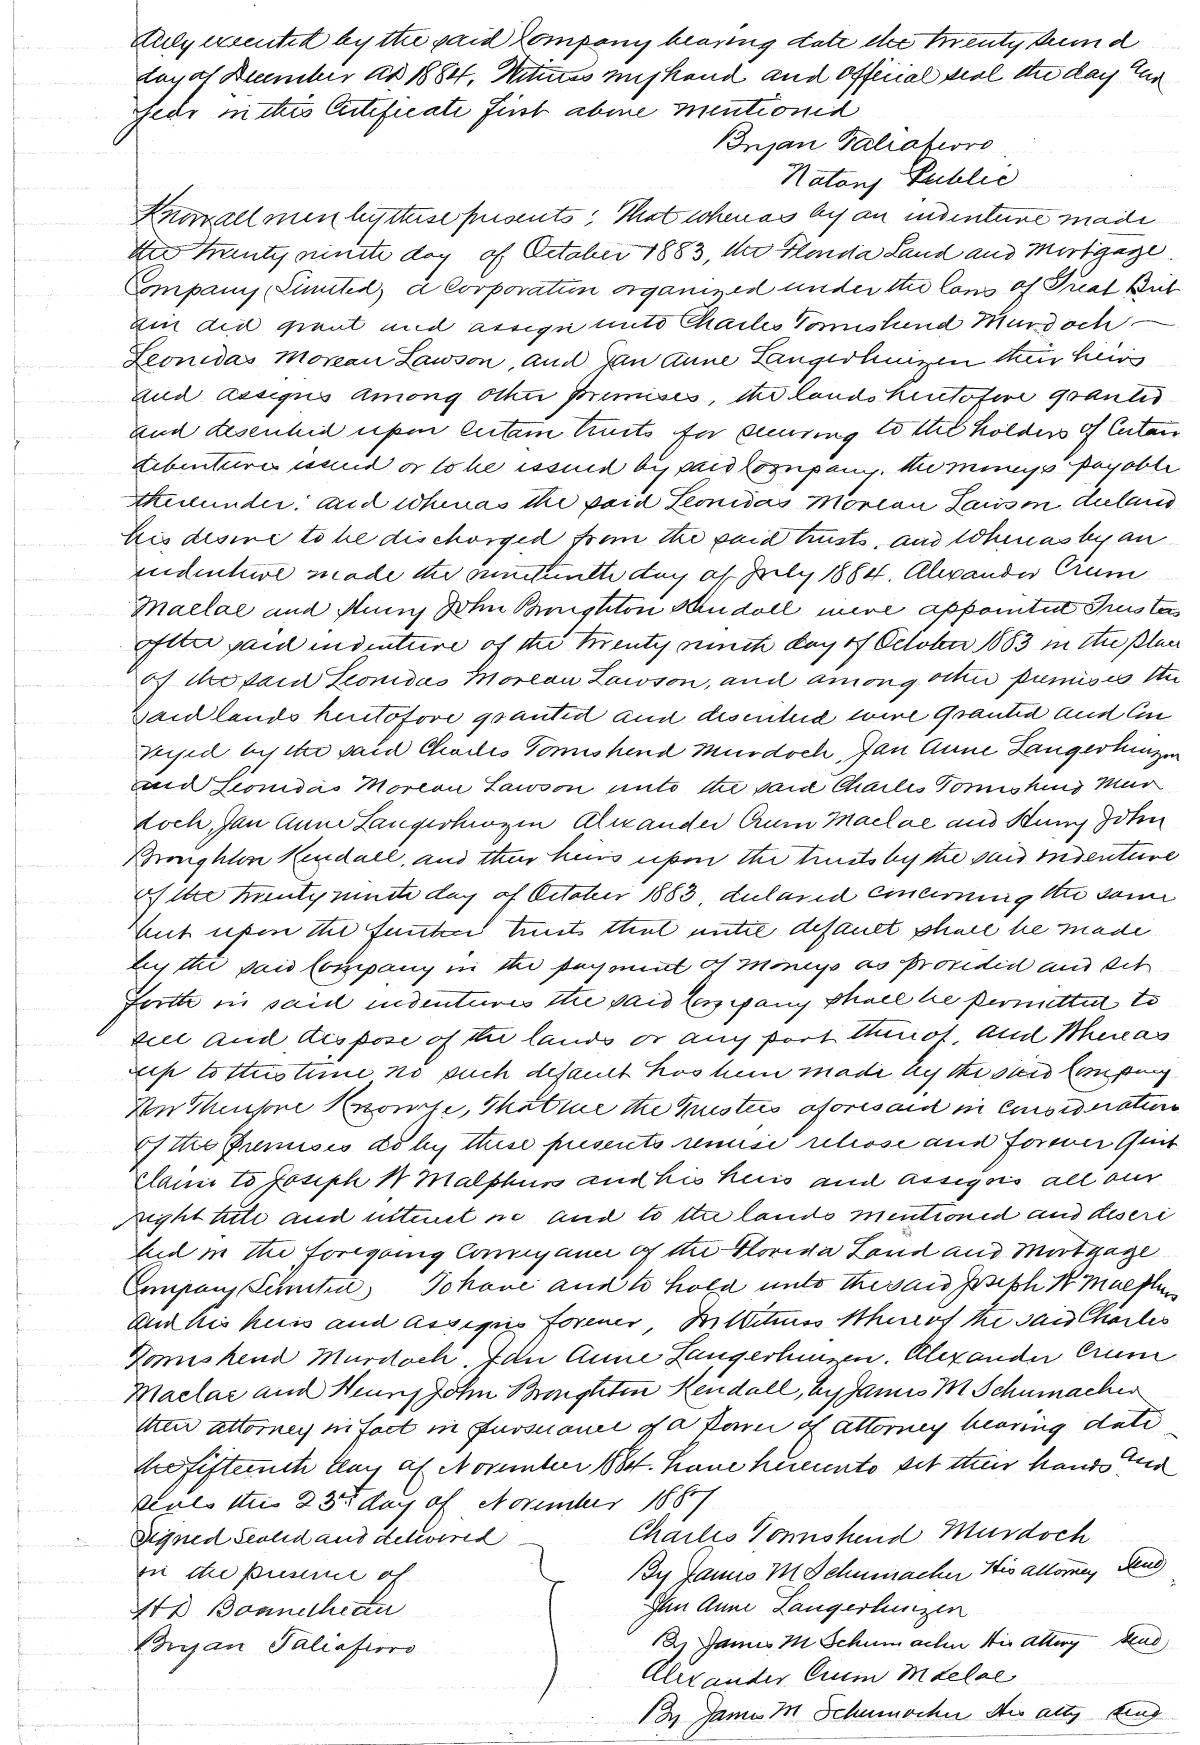 duly executed by the said Company bearing date the twenty second
day of December AD 1884. Witness my hand and official seal the day and
year in this Certificate first above mentioned
Bryan Taliaferro
Notary Public
Know all men by these presents; That whereas by an indenture made
the twenty ninth day of October 1883, the Florida Land and Mortgage
Company (Limited) a Corporation organized under the laws of Great Brit
ain did grant and assign unto Charles Townshend Murdoch —
Leonidas Moreau Lawson, and Jan Anne Langerhuizen their heirs
and assigns among other premises, the lands heretofore granted
and described upon certain trusts for securing to the holders of Certain
debentures issued or to be issued by said Company. the moneys payable
thereunder: and whereas the said Leonidas Moreau Lawson declared
his desire to be discharged from the said trusts. and Whereas by an
indenture made the nineteenth day of July 1884. Alexander Crum
Maclae and Henry John Broughton Kendall were appointed Trustees
of the said indenture of the twenty ninth day of October 1883 in the place
of the said Leonidas Moreau Lawson, and among other premises the
said lands heretofore granted and described were granted and Con
veyed by the said Charles Townshend Murdoch, Jan Anne Langerhuizen
and Leonidas Moreau Lawson unto the said Charles Townshend Mur
doch, Jan Anne Langerhuizen Alexander Crum Maclae and Henry John
Broughton Kendall, and their heirs upon the trusts by the said indenture
of the twenty ninth day of October 1883, declared concerning the same
but upon the further trusts that until default shall be made
by the said Company in the payment of moneys as provided and set
forth in said indentures the said Company shall be permitted to
sell and dispose of the lands or any part thereof, and Whereas
up to this time no such default has been made by the said Company
Now Therefore Know ye, That we the Trustees aforesaid in Consideration
of the Premises do by these presents remise release and forever Quit
claim to Joseph W Malphurs and his heirs and assigns all our
right title and interest in and to the lands mentioned and descri
bed in the foregoing Conveyance of the Florida Land and Mortgage
Company (Limited) To have and to hold unto the said Joseph W Malphurs
and his heirs and assigns forever, In Witness Whereof the said Charles
Townshend Murdoch. Jan Anne Langerhuizen. Alexander Crum
Maclae and Henry John Broughton Kendall, by James M Schumacher
their attorney in fact in pursuance of a Power of attorney bearing date
the fifteenth day of November 1884. have hereunto set their hands and
seals this 23rd day of November 1887
Signed Sealed and delivered
in the presence of
H D Bonnetheau
Bryan Taliaferro
Charles Townshend Murdoch
By James M Schumacher His attorney Seal
Jan Anne Langerhuizen
By James M Schumacher His attorney Seal
Alexander Crum Maclae
By James M Schumacher His atty Seal